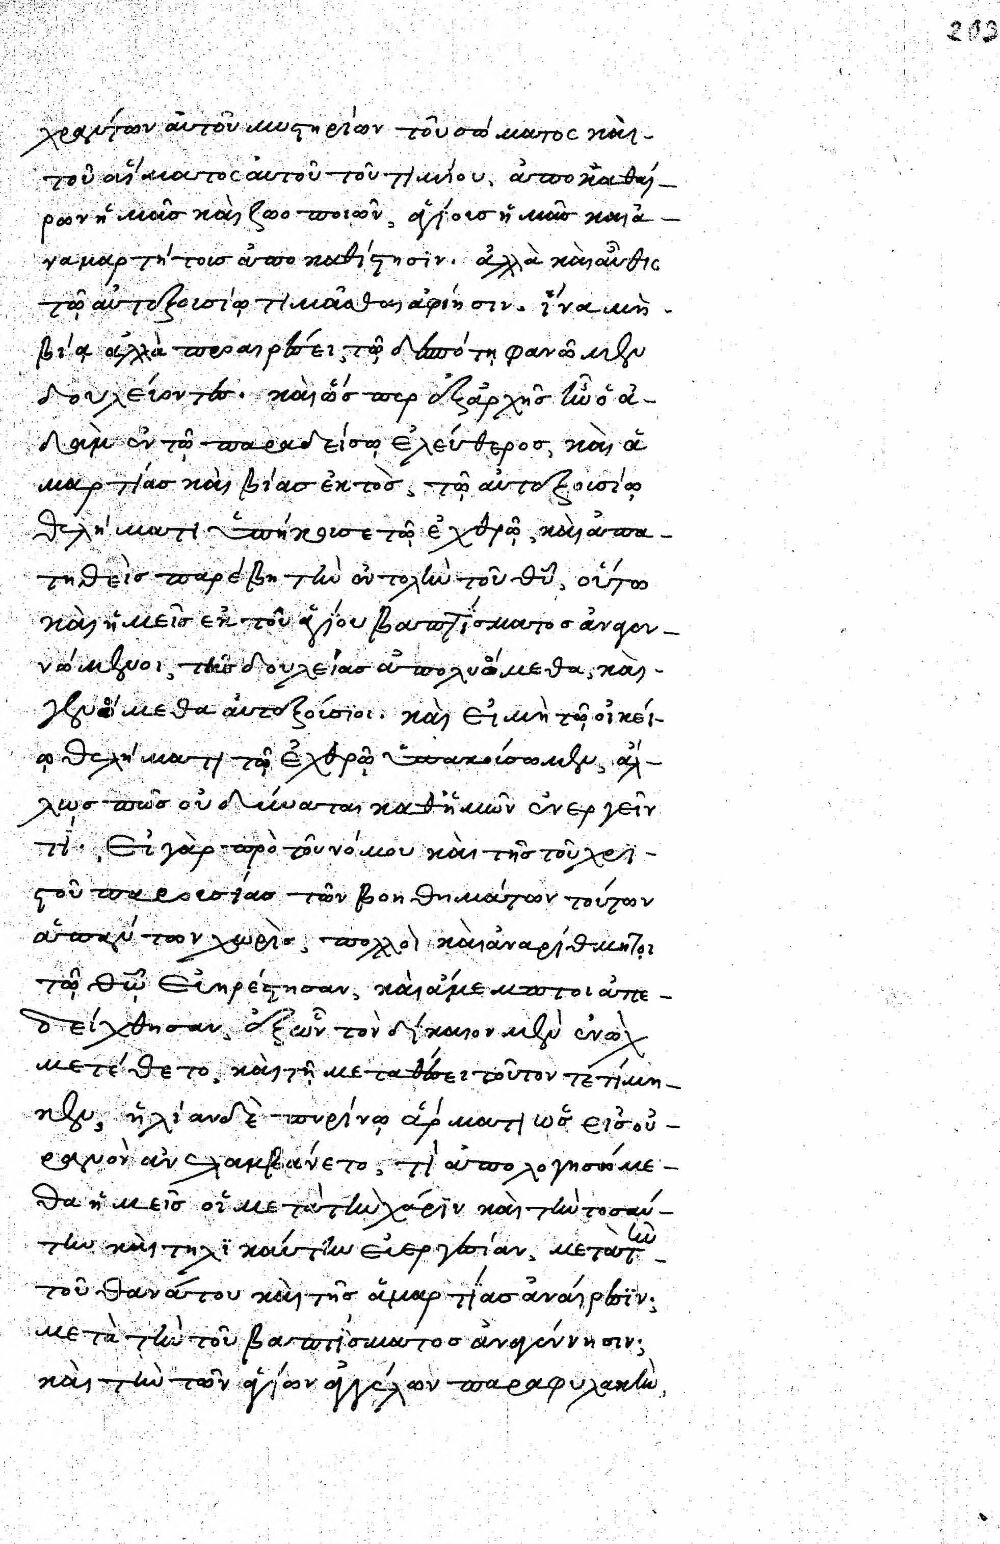 203
χράντων αὐτοῦ μυστηρίων τοῦ σώματος καὶ
τοῦ αἵματος αὐτοῦ τοῦ τιμίου, ἀποκαθαί-
ρων ἡμᾶς καὶ ζωοποιῶν, ἁγίοις ἡμᾶς καὶ ἀ-
ναμαρτήτοις ἀποκαθίστησιν. ἀλλὰ καὶ αὖθις
τῷ αὐτεξουσίῳ τιμᾶσθαι ἀφίησιν. ἵνα μὴ
βίᾳ ἀλλὰ προαιρέσει, τῷ δεσπότῃ φανῶμεν
δουλεύοντες. καὶ ὥσπερ ἐξαρχῆς ἦν ὁ ἀ-
δὰμ ἐν τῷ παραδείσῳ ἐλεύθερος, καὶ ἁ
μαρτίας καὶ βίας ἐκτὸς, τῷ αὐτεξουσίῳ
θελήματι ὑπήκουσε τῷ ἐχθρῷ, καὶ ἀπα-
τηθεὶς παρέβη τὴν ἐντολὴν τοῦ θυ, οὕτω
καὶ ἡμεῖς ἐκ τοῦ ἁγίου βαπτίσματος ἀναγεν-
νώμενοι, τῆς δουλείας ἀπολυόμεθα, καὶ
γενόμεθα αὐτεξούσιοι. καὶ εἰ μὴ τῷ οἰκεί-
ῳ θελήματι τῷ ἐχθρῷ ὑπακούσωμεν, ἄλ-
λως πῶς οὐ δύναται καθ' ἡμῶν ἐνεργεῖν
τί. Εἰ γὰρ πρὸ τοῦ νόμου καὶ τῆς τοῦ χρι-
στοῦ παρουσίας τῶν βοηθημάτων τούτων
ἁπάντων χωρὶς, πολλοὶ καὶ ἀναρίθμητοι
τῷ θῷ εὐηρέστησαν, καὶ ἄμεμπτοι ἀπε-
δείχθησαν, ἐξ ὧν τὸν δίκαιον μὲν ἐνὼχ
μετέθετο, καὶ τῇ μεταθέσει τοῦτον τετίμη-
κεν, ἡλίαν δὲ πυρίνῳ ἅρματι ὡς εἰς οὐ-
ρανὸν ἀνελαμβάνετο, τί ἀπολογησόμε-
θα ἡμεῖς οἱ μετὰ τὴν χάριν καὶ τὴν τοσαύ-
την καὶ τηλικαύτην εὐεργεσίαν, μετὰ τὴν
τοῦ θανάτου καὶ τῆς ἁμαρτίας ἀναίρεσιν;
μετὰ τὴν τοῦ βαπτίσματος ἀναγέννησιν;
καὶ τὴν τῶν ἁγίων ἀγγέλων παραφυλακὴν,